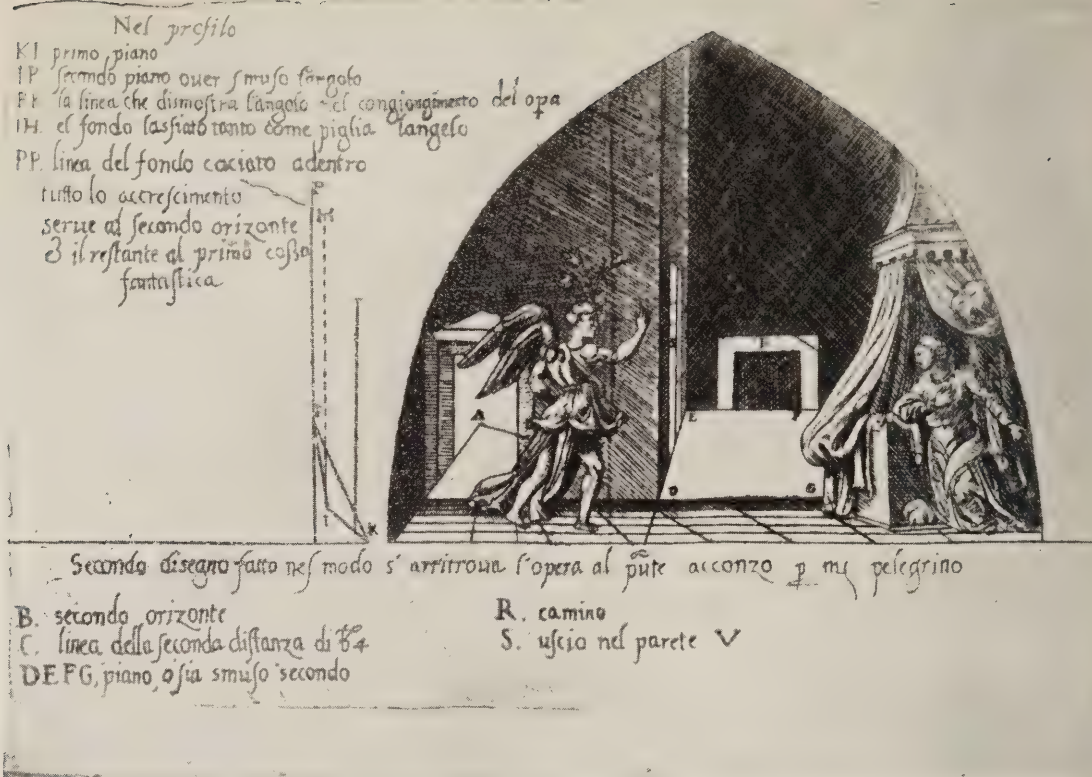 Nel profilo
KI primo piano
IP secondo piano ouer smuso l'angolo
PK la linea che dismostra l'angolo nel congiongimento del opa
IH. el fondo lassiato tanto come piglia l'angelo
PP. linea del fondo caciato adentro
tutto lo accrescimento
serue al secondo orizonte
& il restante al primo cossa
fantastica
P
H
I
K
A
L
Secondo disegno fatto nel modo s'arritroua l'opera al pñte acconzo p mj pelegrino
B. secondo orizonte
C. linea della seconda distanza di
DEFG, piano, osia smuso secondo
R. camino
S. uscio nel parete V